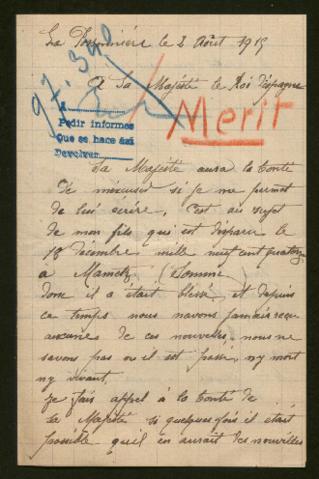 La Pommeraie le 2 Août 1915
A Sa Majesté le Roi d'Espagne
97.390
Merit
Pedir informes
Que se hace así
Devolver
Sa Majesté aura la bonté
de m'éxcuser si je me permet
de lui écrire, C'est au sujet
de mon fils qui est disparu le
18 décembre mille neuf cent quatorze
a Mametz (Somme)
donc il a était blessé et depuis
ce temps nous navons jamais reçu
aucunes de ces nouvelles, nous ne
savons pas ou il est passé, ny mort
ny vivant,
je fais appel à la bonté de
sa Majesté si quelques fois il était
possible quil en aurait des nouvelles